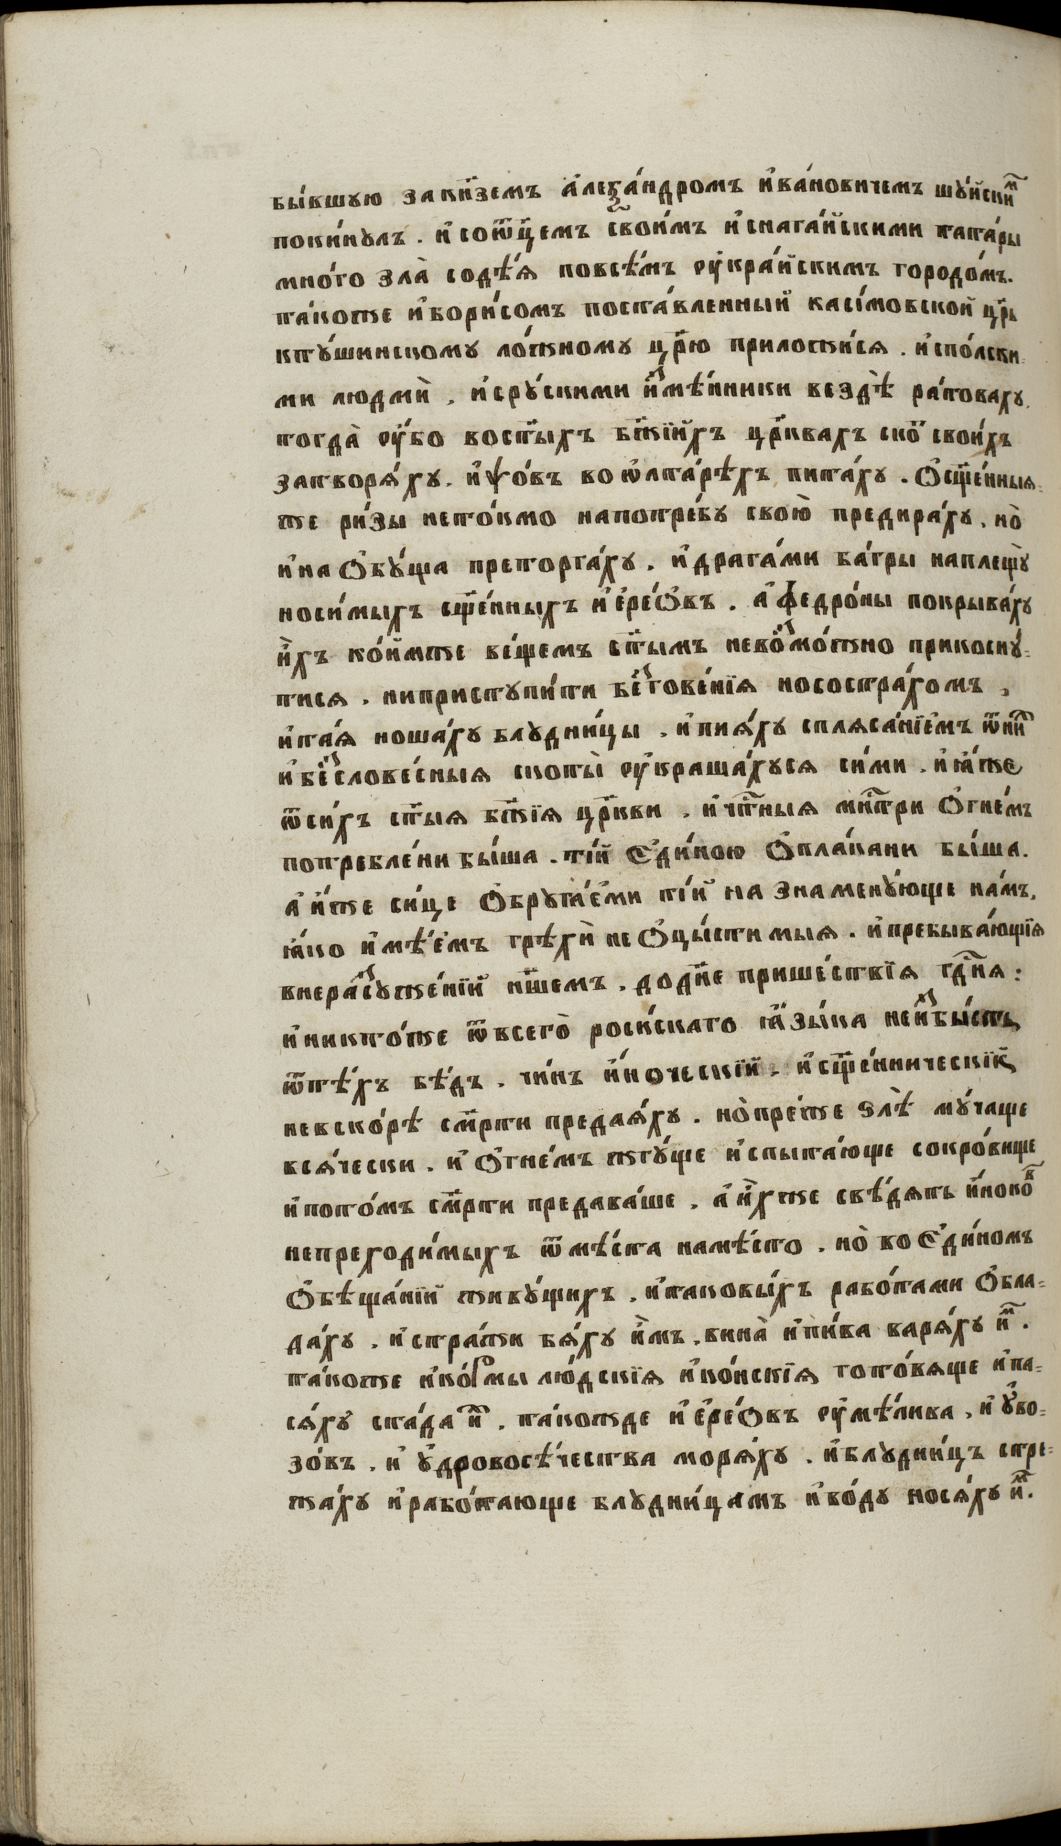 бы́вшую закн҃земъ а҆леѯа́ндромъ и҆ва́новичемъ шу́йскиⷨ
поки́нулъ . и҆ соѿц҃е́мъ свои́мъ и҆снага́йскими тата́ры
мно́го зла̀ содѣ́я повсѣ́мъ ᲂу҆кра́йскимъ городо́мъ .
та́коже и҆бори́сомъ поста́вленный каси́мовской цр҃ь
кту́шинскому ло́жному цр҃ю приложи́ся . и҆спо́лски-
ми людмѝ , и҆сру́скими и҆ꙁмѣ́нники вездѣ̀ ра́товаху .
тогда̀ ᲂу҆́бо вост҃ыхъ бж҃іихъ цр҃квахъ ско҃ свои́хъ
затворя́ху . и҆ ѱо́въ во ѡ҆лтарѣ́хъ пита́ху . Ѻ҆сщ҃е́нныя-
же ри́зы нето́кмо напотре́бу свою̀ предира́ху , но̀
и҆на ѻ҆бу́ща преторга́ху . и҆драга́ми ба́гры наплещу̀
носи́мыхъ сщ҃е́нныхъ и҆ере́ѻвъ . а҆ федро́ны покрыва́ху
и҆̀хъ ко́имже ве́щемъ ст҃ымъ невоꙁмо́жно прикосну́-
тися . ниприступи́ти беꙁгове́нїя нососпра́хомъ ,
и҆та́я ноша́ху блудни́цы . и҆пия́ху спляса́нїемъ ѿниⷯ
и҆бесслове́сныя скоты̀ ᲂу҆краша́хуся си́ми . и҆ ꙗ҆́же
ѿси́хъ ст҃ыя бж҃їя цр҃кви . и҆ чтⷭ҇ныя мнⷭ҇три ѻ҆гне́мъ
потребле́ни бы́ша . ті́и є҆ди́ною ѻ҆пла́кани бы́ша .
а҆ и҆́же си́це ѻ҆бруга́еми ті́и на знамену́юще на́мъ ,
ꙗ҆́ко и҆мѣ́емъ грѣхѝ не ѻ҆цы́стимыя . и҆пребыва́ющїя
внераꙁсужде́нїи нш҃емъ . до дн҃е прише́ствїя гдⷭ҇ня :
и҆никто́же ѿвсего̀ росі́скаго ꙗ҆зы́ка неиꙁбы́сть
ѿтѣ́хъ бѣ́дъ . чи́нъ и҆́ноческїй . и҆ сщ҃е́нническїй
невско́рѣ см҃рти предая́ху . но̀пре́же ѕлѣ̀ му́чаще
вся́чески . и҆ ѻ҆гне́мъ жгу́ще и҆спыта́юще сокро́вище
и҆пото́мъ см҃рти предава́ше . а҆ и҆́хже свѣ́дять и҆́нокоⷡ
непреходи́мыхъ ѿмѣ́ста намѣ́сто . но̀ во є҆ди́номъ
ѻ҆бѣща́нїи живу́щихъ . и҆таковы́хъ рабо́тами ѻ҆бла-
да́ху . и҆ стра́жи бя́ху и҆̀мъ . вина̀ и҆пи́ва варя́ху и҆ⷨ .
та́коже и҆ко́рмы лю́дскїя и҆ко́нскїя гото́вяще и҆па-
ся́ху ста́да иⷯ . та́кожде и҆ ере́ѻвъ ᲂу҆мѣ́лива , и҆ у҆во-
зо́въ . и҆ у҆ дровосѣ́чества моря́ху . и҆блудни́цъ стре-
жа́ху и҆рабо́тающе блудни́цамъ и҆во́ду нося́ху и҆ⷨ .